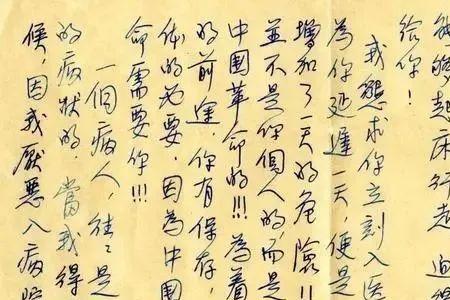 能夠起床行走
給你！
我懇求你立刻入医
為你延遲一天，便是
增加了一天的危險!!
並不是你個人的，而是
中国革命的!!! 為着
的前途，你有保存
体的必要，因為中国
命需要你!!!
一個病人，往〻是
的病狀的，當我得
候，因我厭惡入病